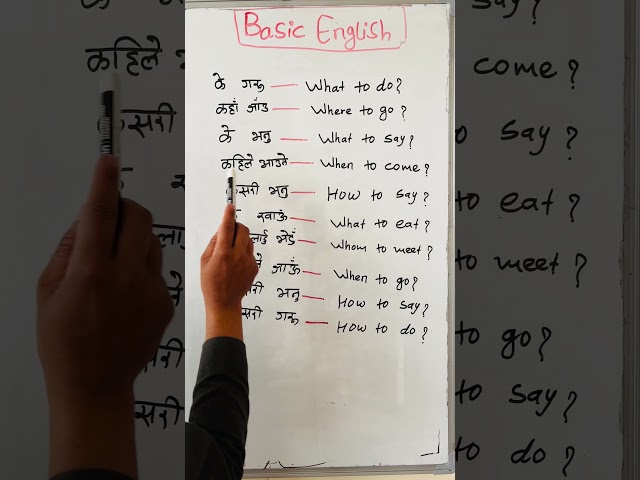 Basic English
के गरु — What to do?
कहाँ जाँउ — Where to go?
के भनु — What to say?
कहिले आउने — When to come?
सरी भनु — How to say?
खाऊँ — What to eat?
लाई भेटुँ — Whom to meet?
जाऊँ — When to go?
री भनु — How to say?
सरी गरु — How to do?